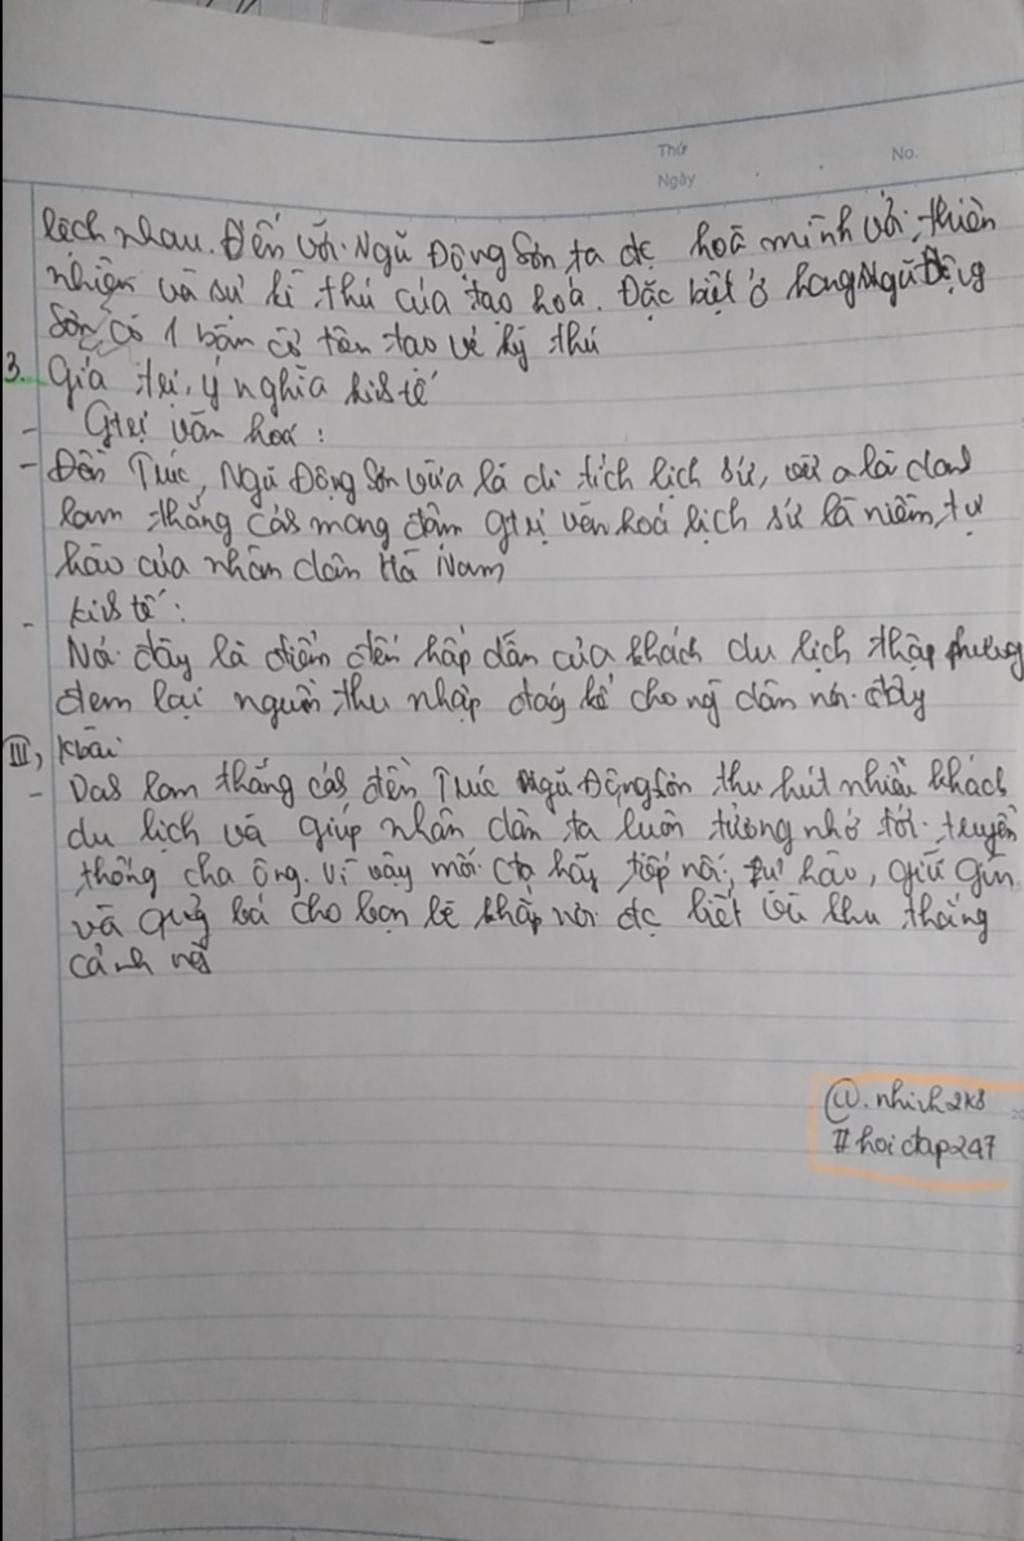 Thứ No.
Ngày
lệch nhau. Đến với Ngũ Động Sơn ta đc hoà mình với thiên
nhiên và sự kì thú của tạo hoá. Đặc biệt ở hang Ngũ Động
Sơn có 1 bàn cờ tân tạo vẻ kỳ thú
3. Giá trị, ý nghĩa kinh tế
- Gtrị văn hoá :
- Đền Trúc, Ngũ Động Sơn vừa là di tích lịch sử, vừa là danh
lam thắng cảnh mang đậm gtrị văn hoá lịch sử là niềm tự
hào của nhân dân Hà Nam
- kinh tế :
Nơi đây là điểm đến hấp dẫn của khách du lịch thập phương
đem lại nguồn thu nhập đáng kể cho ng dân nơi đây
III, Kbài
- Danh lam thắng cảnh đền Trúc Ngũ Động Sơn thu hút nhiều khách
du lịch và giúp nhân dân ta luôn tưởng nhớ tới truyền
thống cha ông. Vì vậy mỗi cta hãy tiếp nối, tự hào, giữ gìn
và quảng bá cho bạn bè khắp nơi đc biết về khu thắng
cảnh này
@.nhinh2k8
#hoidap247